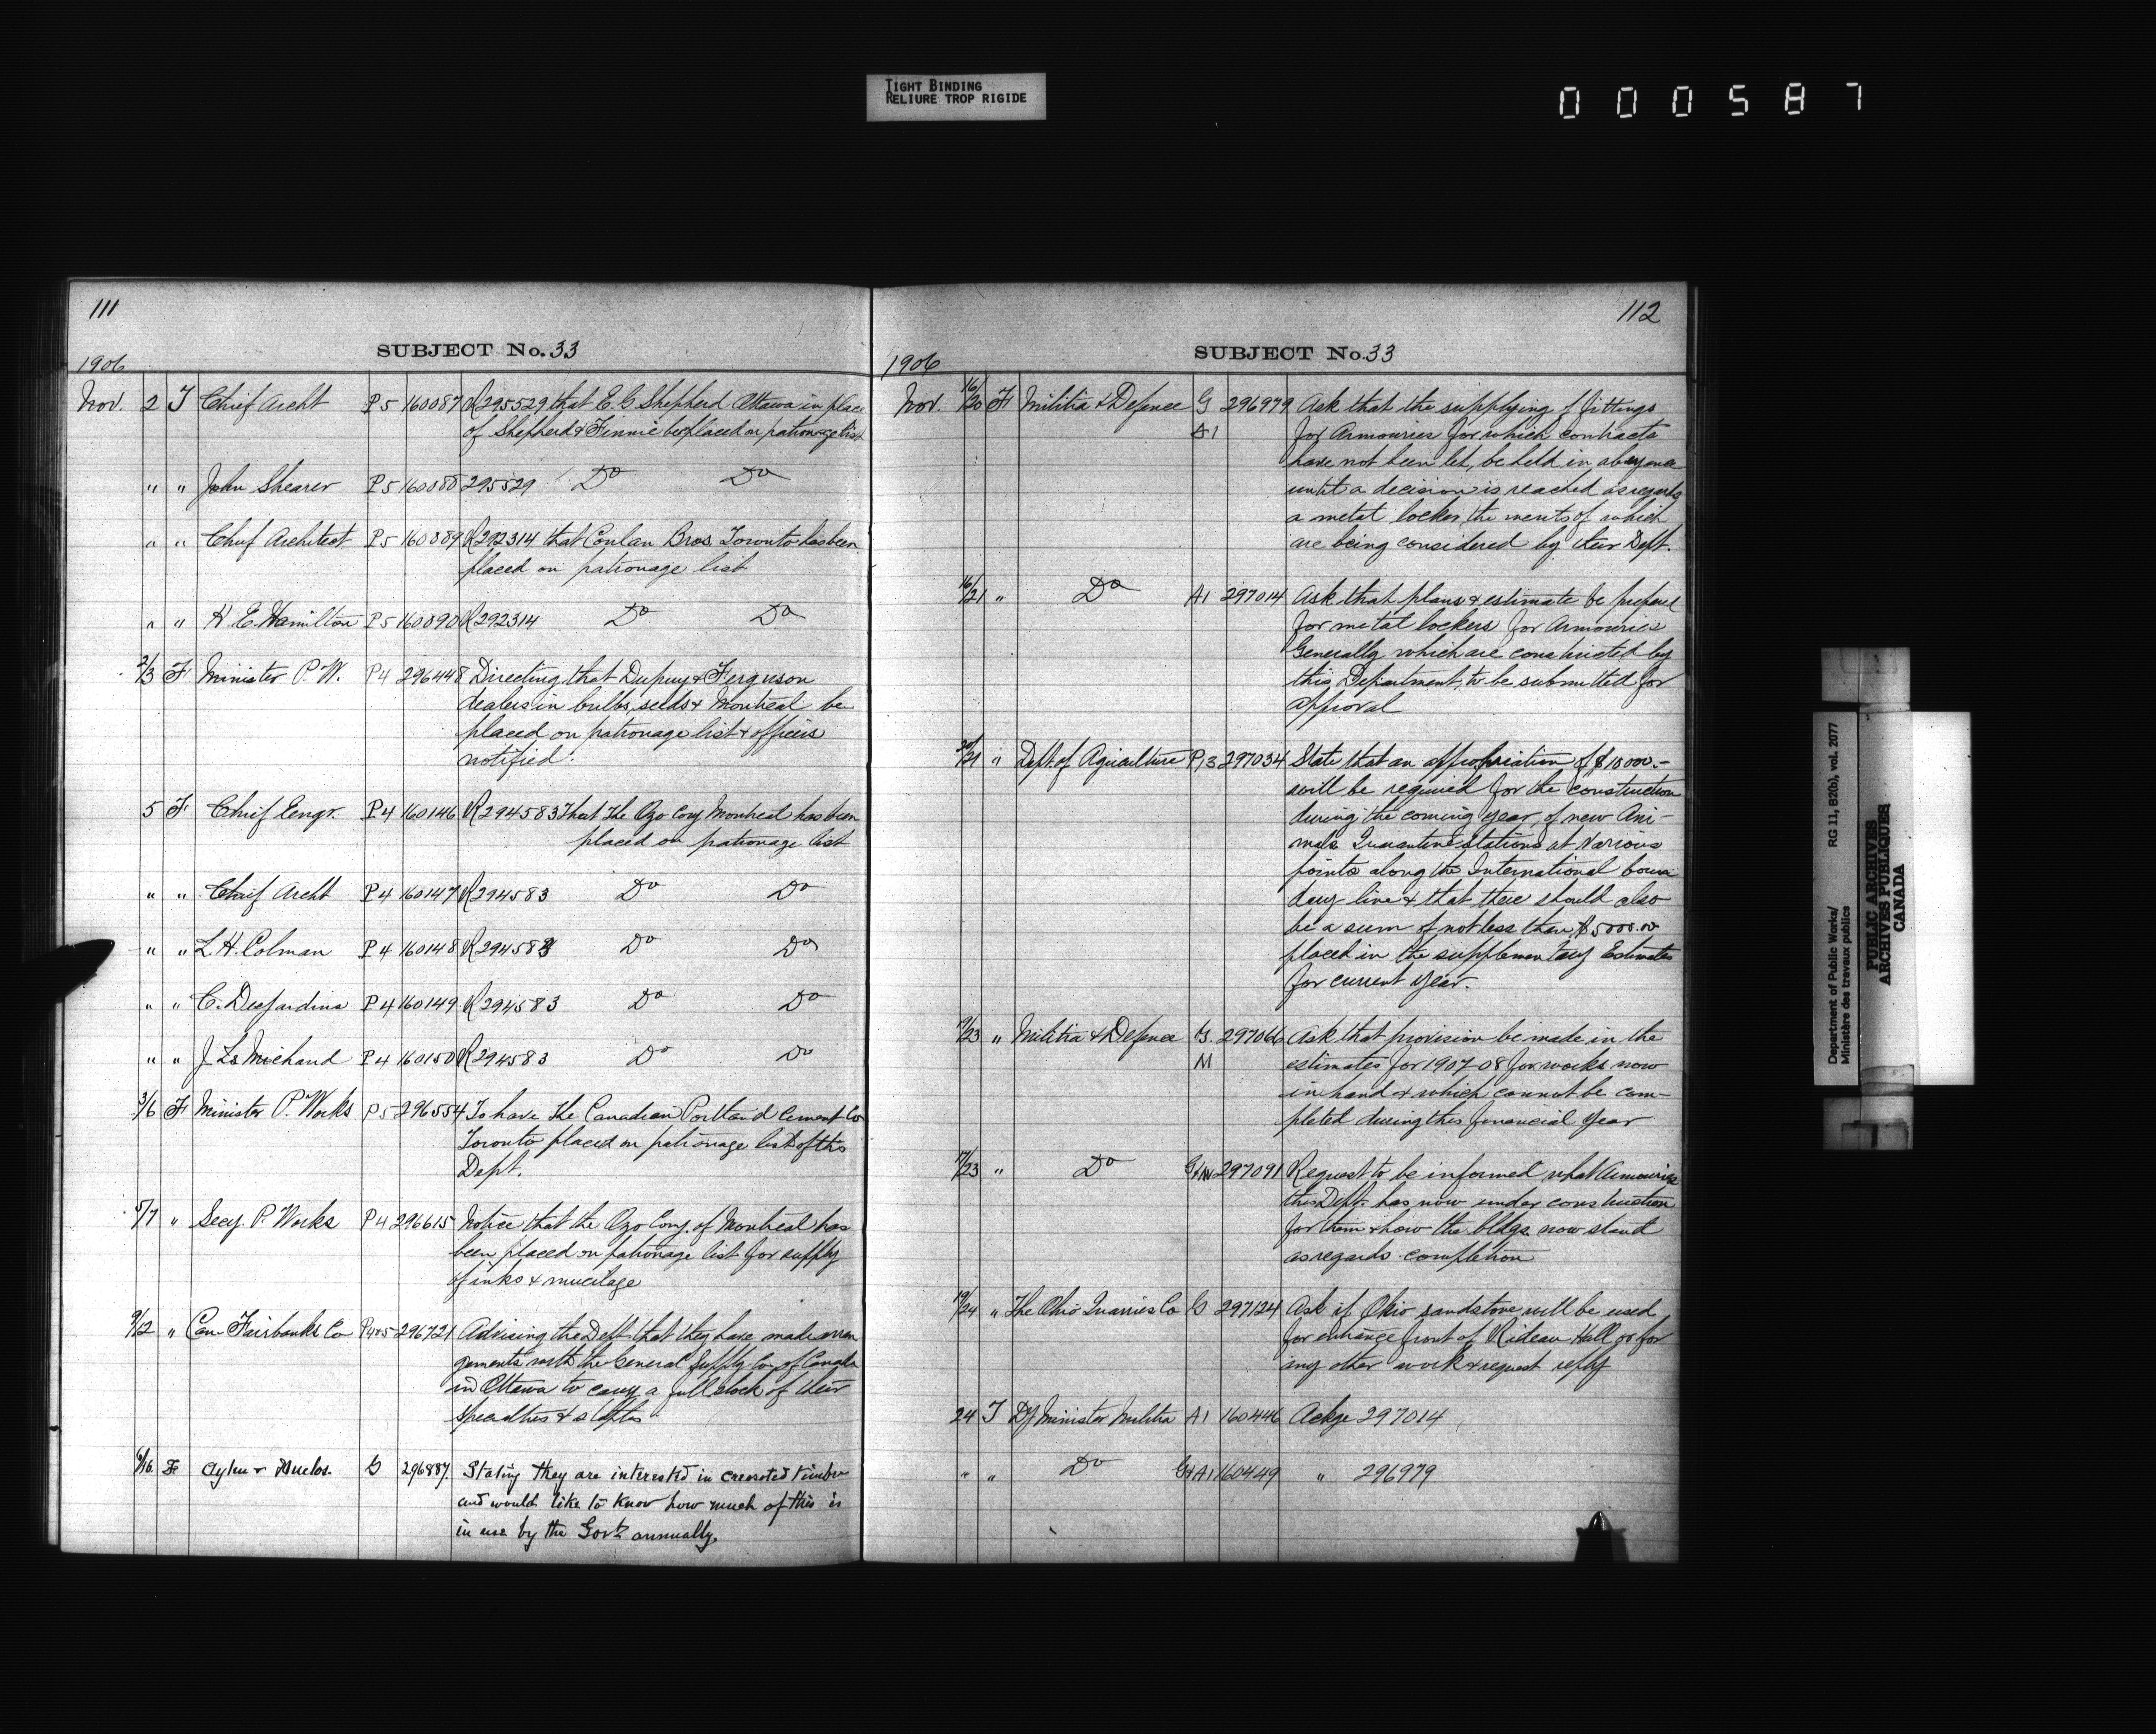 TIGHT BINDING
RELIURE TROP RIGIDE
000587
111
SUBJECT No. 33
1906
Nov. 2 T Chief Archt P5 160087 R295529 that E. G Shepherd Ottawa in place
of Shepherd & Finnie be placed on patronage list
" " John Shearer P5 160088 295529 Do Do
" " Chief Architect P5 160089 R292314 that Conlan Bros. Toronto has been
placed on patronage list
" " H. E. Hamilton P5 160090 R292314 Do Do
2/3 F Minister P. W. P4 296448 Directing that Dupuy & Ferguson
dealers in bulbs, seeds & Montreal be
placed on patronage list & officers
notified.
5 F Chief Engr. P4 160146 R294583 That The Ozo Coy Montreal has been
placed on patronage list
" " Chief Archt P4 160147 R294583 Do Do
" " L. H. Colman P4 160148 R294583 Do Do
" " C. Desjardins P4 160149 R294583 Do Do
" " J. Ls Michaud P4 160150 R294583 Do Do
3/6 F Minister P. Works P5 296554 To have The Canadian Portland Cement Co
Toronto placed on patronage list of this
Dept.
5/7 " Secy. P. Works P4 296615 Notice that the Ozo Coy. of Montreal has
been placed on patronage list for supply
of inks & mucilage
9/12 " Can Fairbanks Co P4&5 296721 Advising the Dept that they have made arran
gements with the General Supply Co. of Canada
in Ottawa to carry a full stock of their
specialties & staples
/16 F G 296887. Stating they are interested in creosoted timber
and would like to know how much of this is
in use by the Govt annually.
112
SUBJECT No. 33
1906
Nov. 16/20 F Militia & Defence G 296979 Ask that the supplying of fittings
A1 for Armouries for which contracts
have not been let, be held in abeyance
until a decision is reached as regards
a metal locker, the merits of which
are being considered by their Dept.
16/21 " Do A1 297014 Ask that plans & estimate be prepared
for metal lockers for Armouries
Generally which are constructed by
this Department, to be submitted for
approval
20/21 " Dept. of Agriculture P13 297034 State that an appropriation of $10000.-
will be required for the construction
during the coming year, of new Ani-
mals Quarantine stations at various
points along the International boun
dary line & that there should also
be a sum of not less than $5000.00
placed in the supplementary Estimates
for current year.
/23 " Militia & Defence G. 297066 Ask that provision be made in the
M estimates for 1907-08 for works now
in hand & which cannot be com-
pleted during this financial year
17/23 " Do G&M 297091 Request to be informed what Armouries
this Dept. has now under construction
for them & how the bldgs. now stand
as regards completion
19/24 " The Ohio Quarries Co G 297124 Ask if Ohio sandstone will be used
for entrance front of Rideau Hall or for
any other work & request reply
24 T Dy Minister Militia A1 160446 Ackge 297014
" " Do G&A1 160449 " 296979
Department of Public Works/ RG 11, B2(b), vol. 2077
Ministère des travaux publics
PUBLIC ARCHIVES
ARCHIVES PUBLIQUES
CANADA